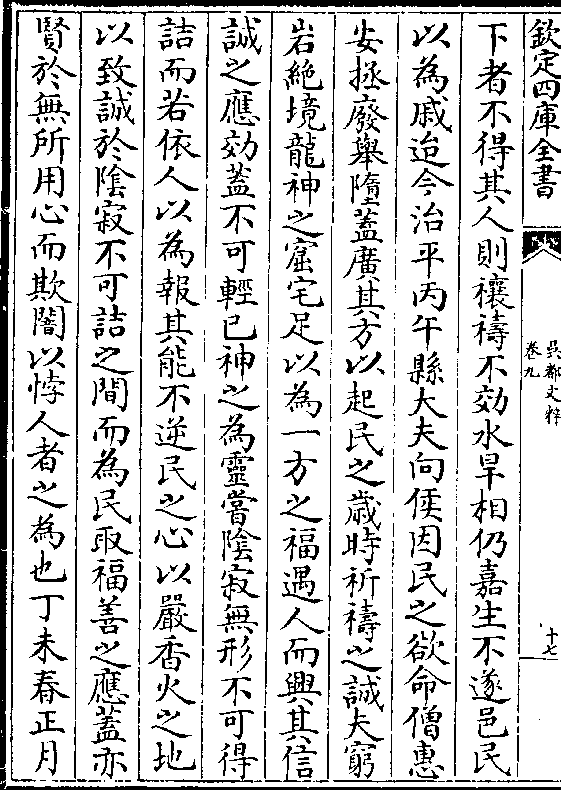 欽定四庫全書
吳都文粹
卷九
十七
下者不得其人則禳禱不効水旱相仍嘉生不遂邑民
以為戚迨今治平丙午縣大夫向侯因民之欲命僧惠
安拯廢舉墮蓋廣其方以起民之歲時祈禱之誠夫窮
岩絶境龍神之窟宅足以為一方之福遇人而興其信
誠之應効蓋不可輕已神之為靈嘗隂寂無形不可得
詰而若依人以為報其能不逆民之心以嚴香火之地
以致誠於隂寂不可詰之間而為民取福善之應蓋亦
賢於無所用心而欺闇以悖人者之為也丁未春正月